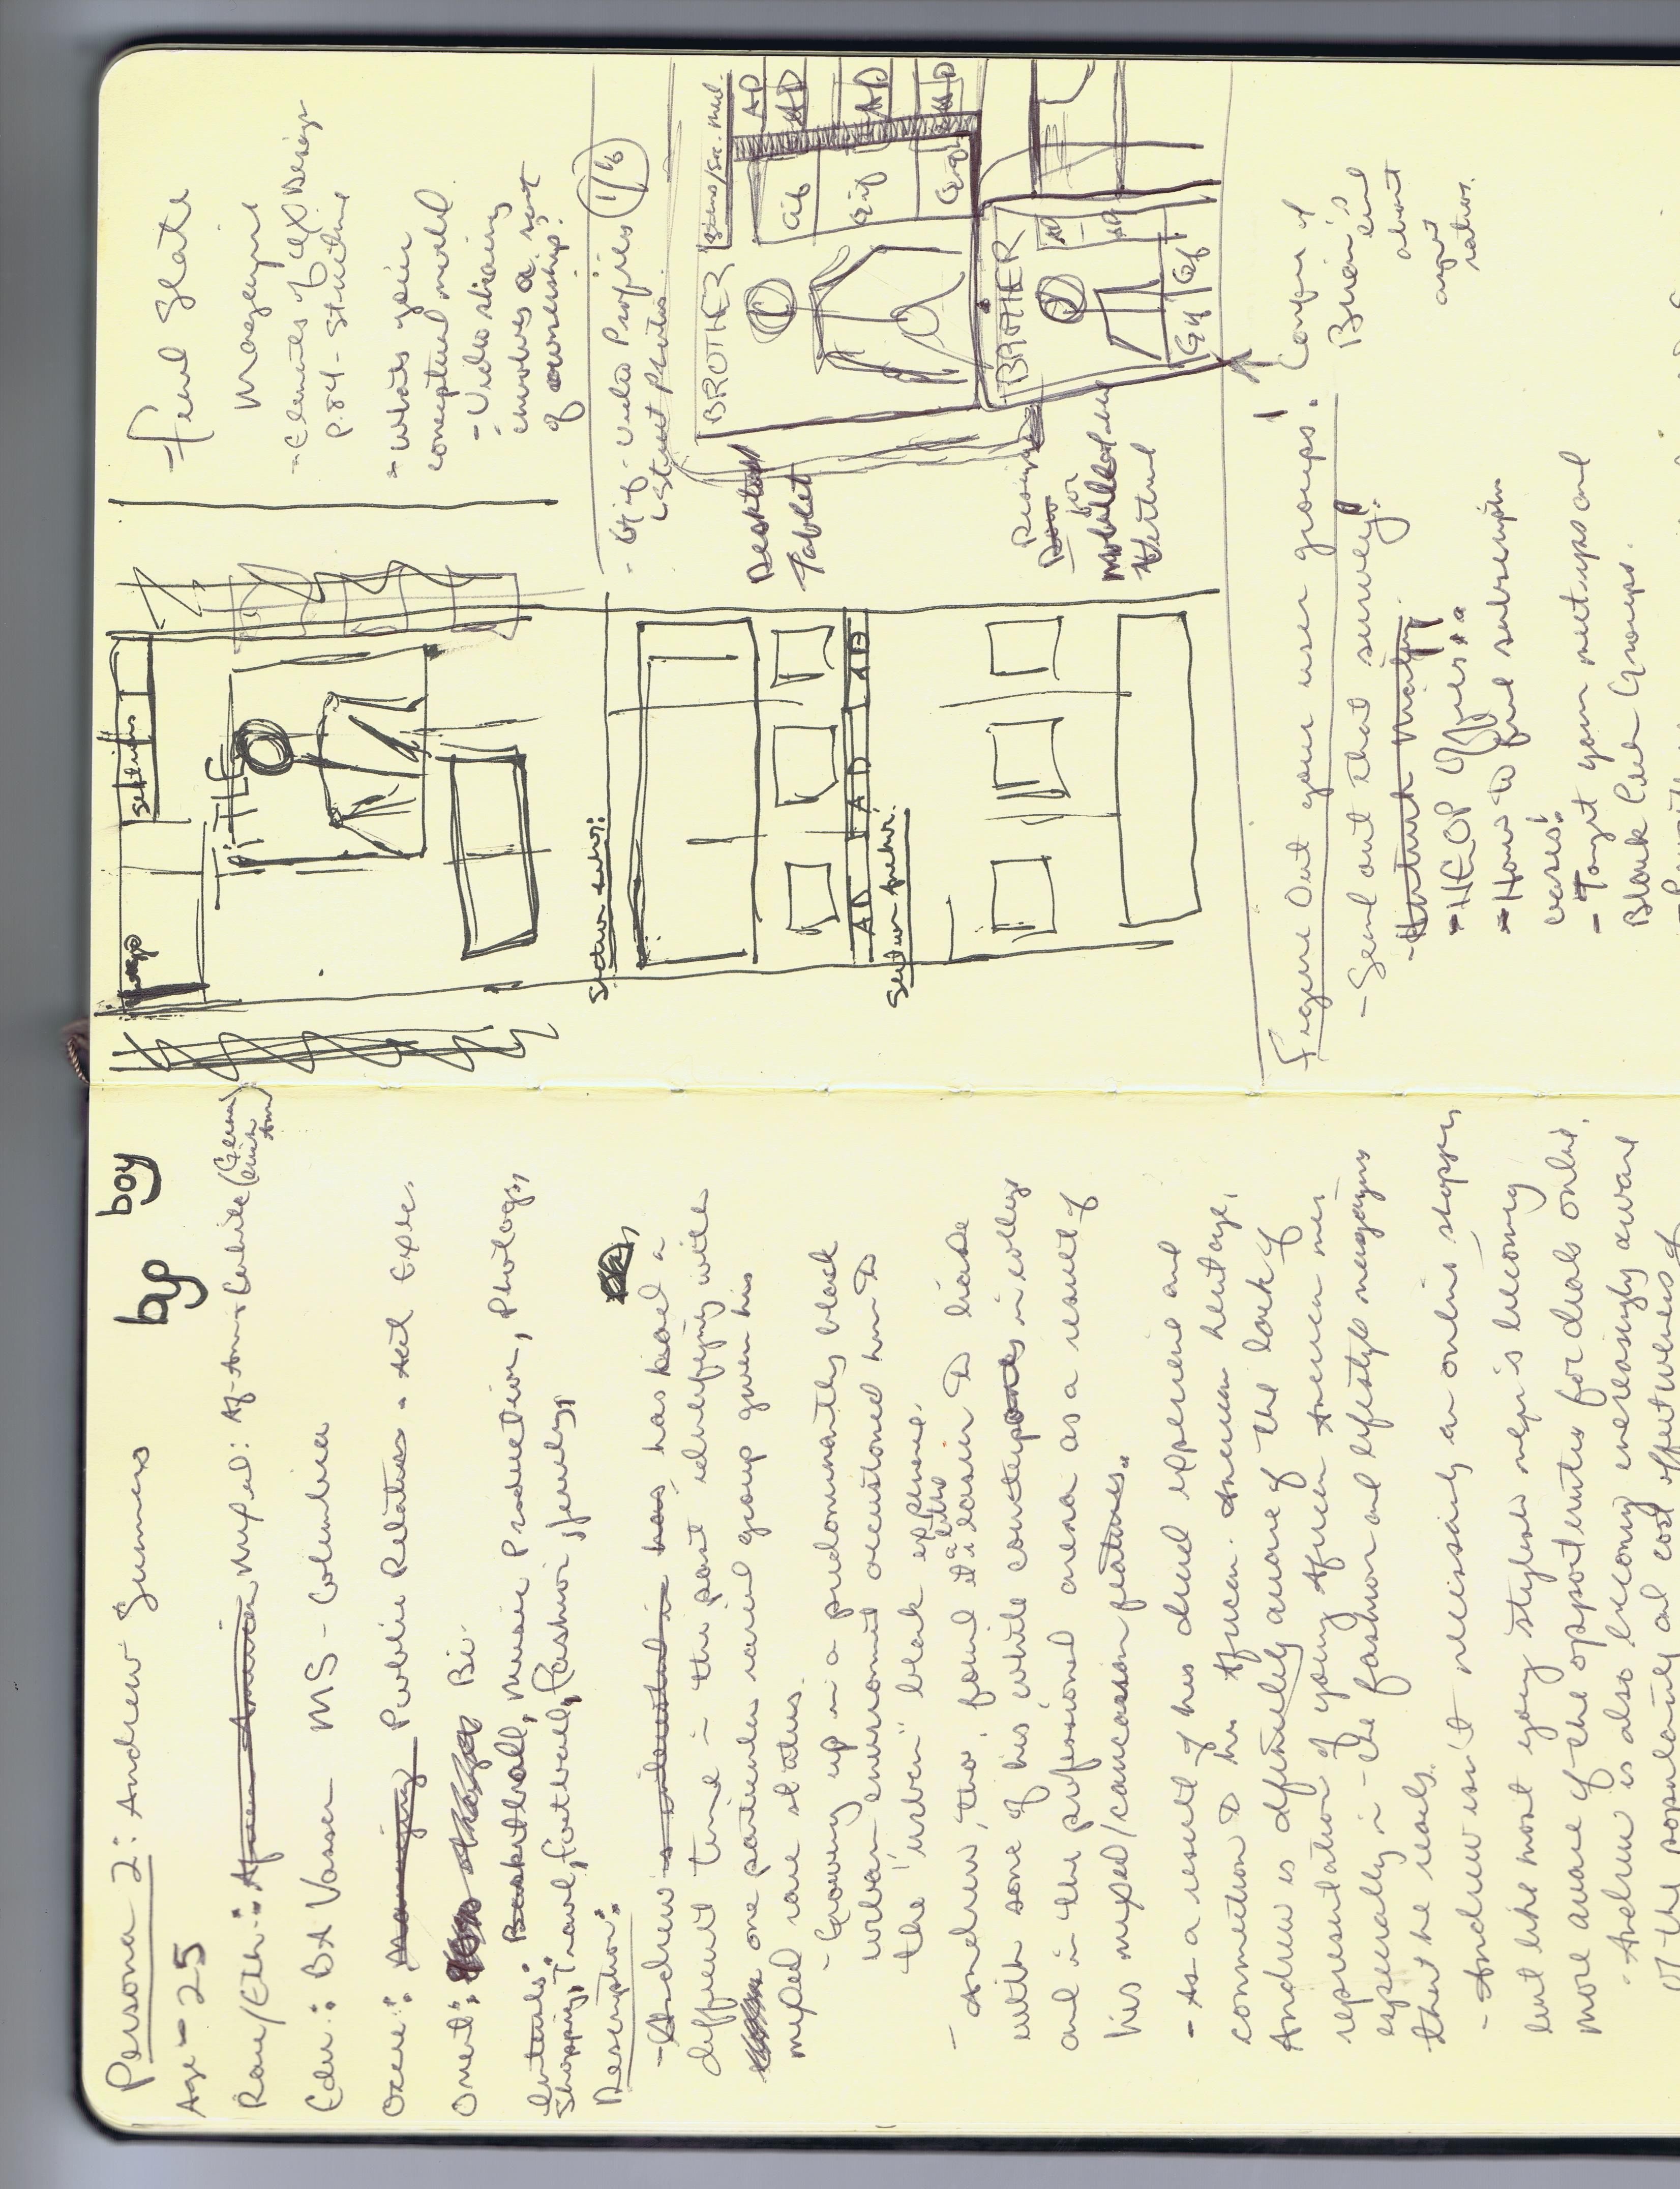 Persona 2: Andrew Summers
by boy
Age - 25
Race/Eth.: African American Mixed: Af-Am & White (German
Irish
Am)
Edu.: BA Vassar MS - Columbia
Occu: Managing Public Relations - Acct Exec.
Orient: Bi-
Interests: Basketball, Music Production, Photog.,
Shopping, Travel, football, fashion, jewelry,
Description:
- Andrew is interested in has has had a
difficult time in the past identifying with
one particular racial group given his
mixed race status.
- Growing up in a predominantly black
urban environment accustomed him to
the "urban" black experience.
- Andrew, tho, found it a little easier to liase
with some of his white counterparts in college
and in the professional arena as a result of
his mixed/caucasian features.
- As a result of his dual experience and
connection to his African-American heritage,
Andrew is definitely aware of the lack of
representation of young African American men
especially in the fashion and lifestyle magazines
that he reads.
- Andrew isn't necessarily an online shopper
but like most young stylish men is becoming
more aware of the opportunities for deals online.
- Andrew is also becoming increasingly aware
of the popularity and cost effectiveness of
Logo Sections
TITLE
Section Anchor:
AD AD AD
Section Anchor:
- Find Slate
Magazine
- Elements of UX Design
p.84 - Structure
- Whats your
conceptual model.
- Video sharing
involves a sort
of ownership?
- Gif - Video Profiles 1/16
Street Photos.
Desktop
Tablet
BROTHER /Soc. Med.
AD
Gif AD
Gif AD
Gif AD
Design
Row
for
Mobile
Vertical
BROTHER
AD
AD
Gif Gif
Figure Out your user groups!
- Send out that survey!
- HEOP Offices
- How to find subscription
bases!
- Target your meet-ups and
Black Tech Groups.
Brian's
about
aspect
ratios.